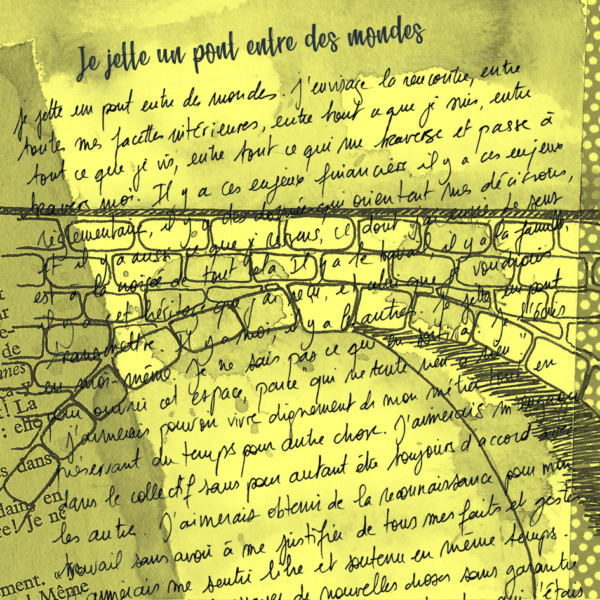 Je jette un pont entre des mondes
Je jette un pont entre des mondes. J'envisage la rencontre, entre
toutes mes facettes intérieures, entre tout ce que je suis, entre
tout ce que je vis, entre tout ce qui me traverse et passe à
travers moi. Il y a ces enjeux financiers il y a ces enjeux
réglementaires, il y a des qui orientent mes décisions,
et il y a aussi ce que je ressens, ce dont j'ai envie. Le sens
est à la croisée de tout cela. Il y a le travail, il y a la famille,
il y a cet héritage que j'ai reçu, et celui que je voudrais
transmettre. Il y a moi, il y a l'autre. Je jette un pont
en moi-même. Je ne sais pas ce qui en
pour ouvrir cet espace, parce qu'il ne tente rien
J'aimerais pouvoir vivre dignement de mon métier tout en
préservant du temps pour autre chose. J'aimerais m'engager
dans le collectif sans pour autant être toujours d'accord avec
les autres. J'aimerais obtenir de la reconnaissance pour mon
travail sans avoir à me justifier de tous mes faits et gestes.
J'aimerais me sentir libre et soutenu en même temps.
de nouvelles choses sans garantie
de
La
: elle
dans
dans en
re! Je ne
ment.
Même